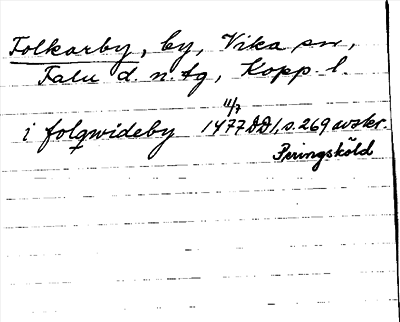 Folkarby, by, Vika sn,
Falu d. n. tg, Kopp. l.
i folqwideby 1477 11/7 DD1, s. 269 avskr.
Peringsköld